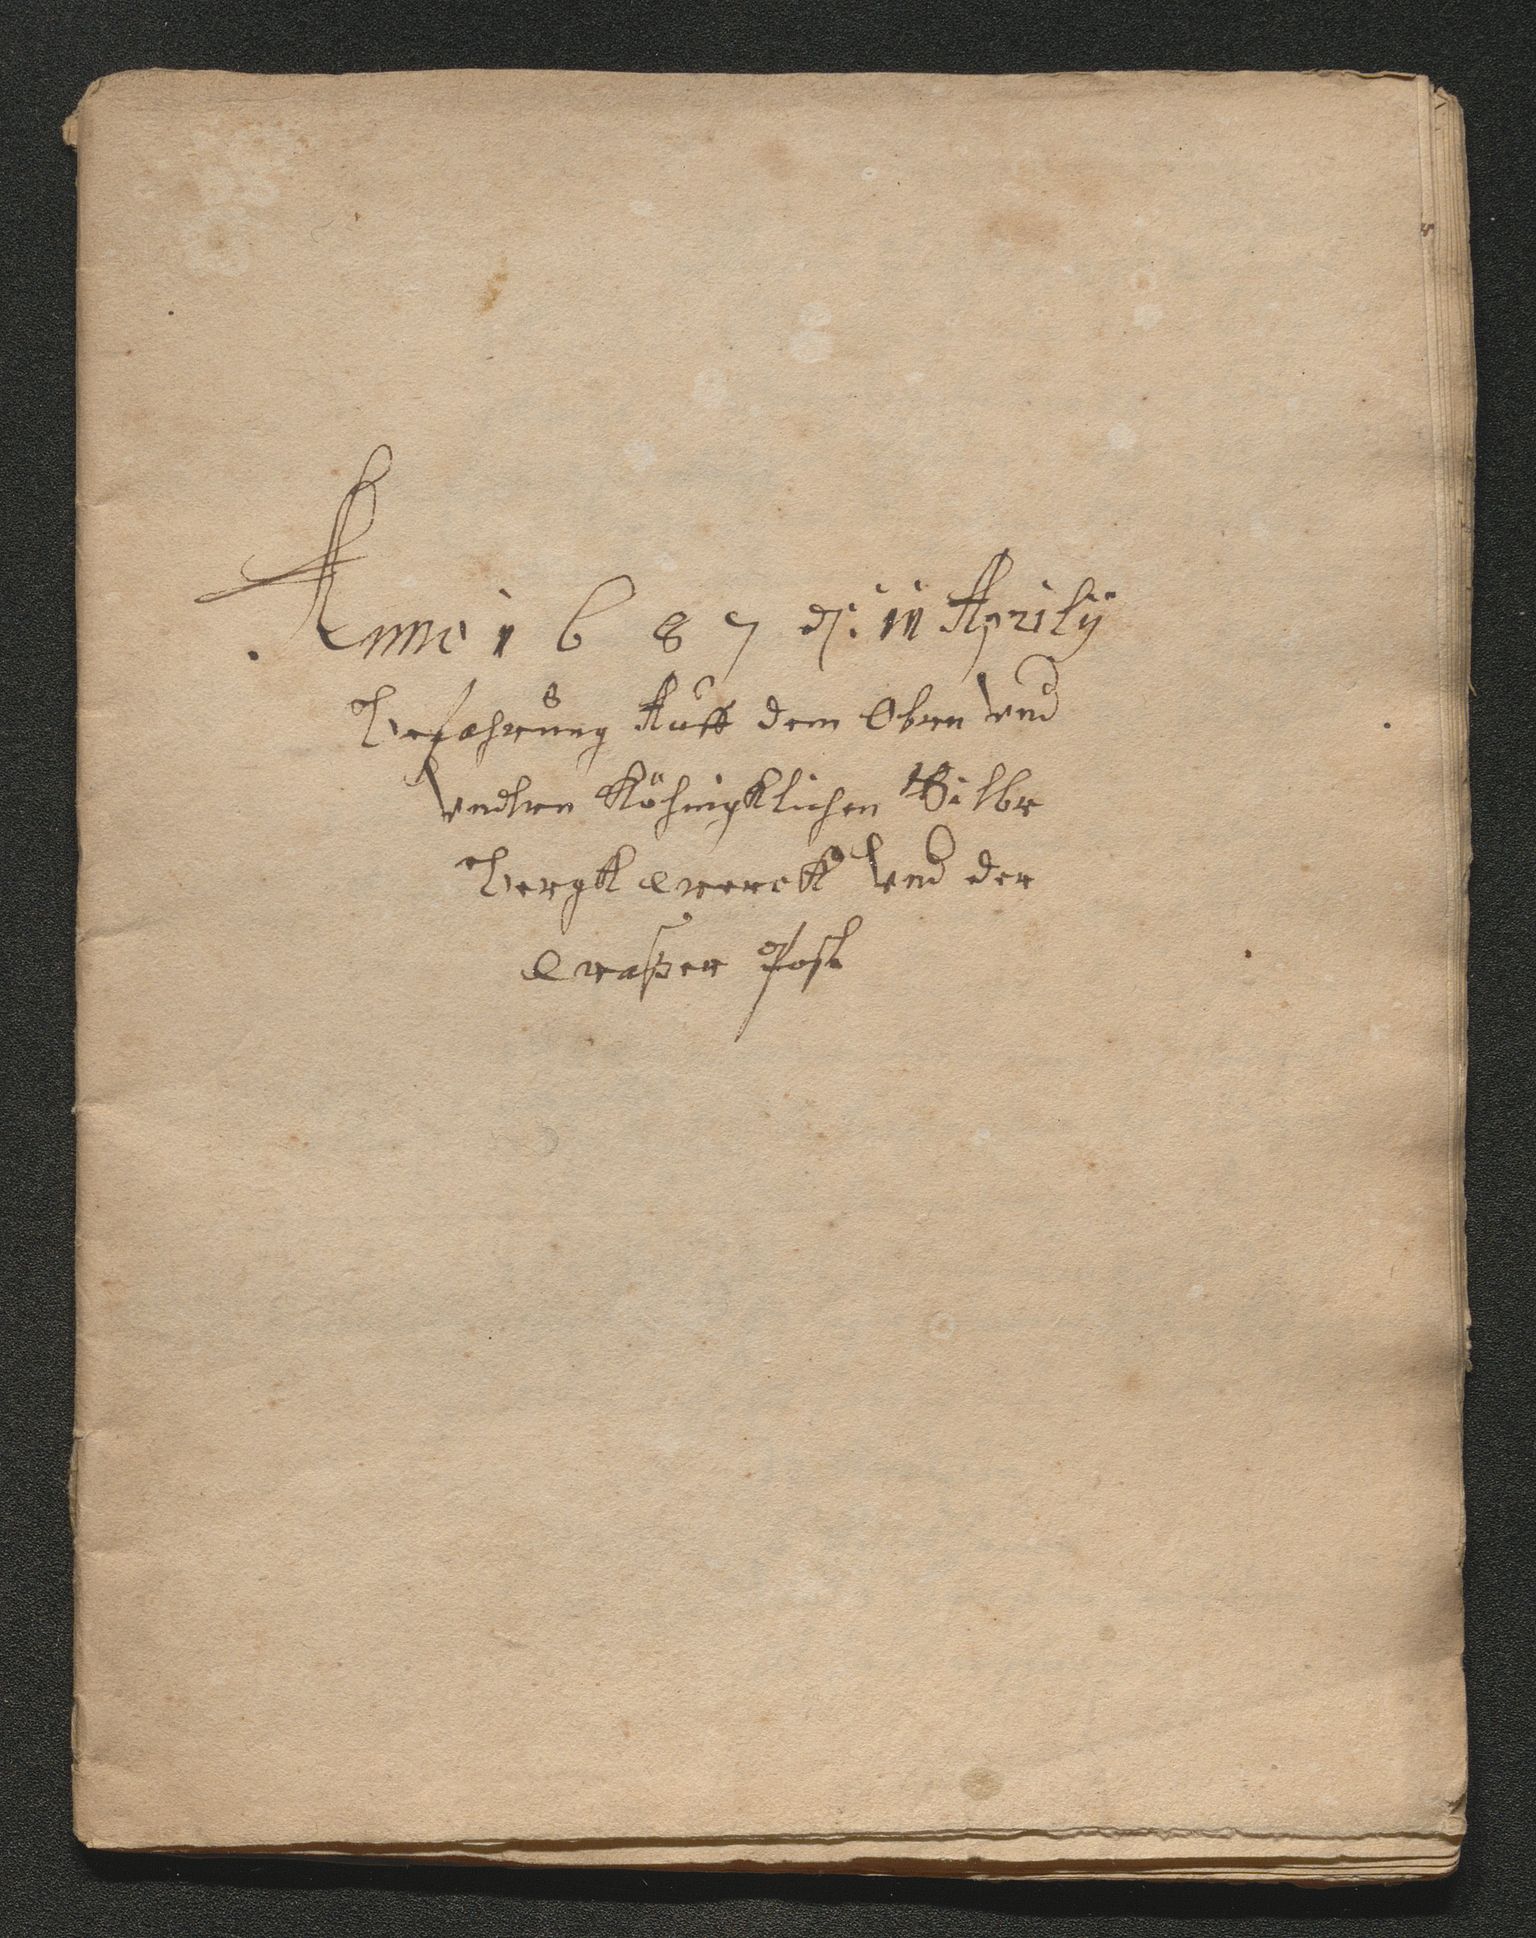 Anno 1687 d: 11 Aprily
Befahrung Auff dem Oben Vnd
Vndtren Köhnigklichen Silbr
Bergk Werck Vnd der
Waßer Post